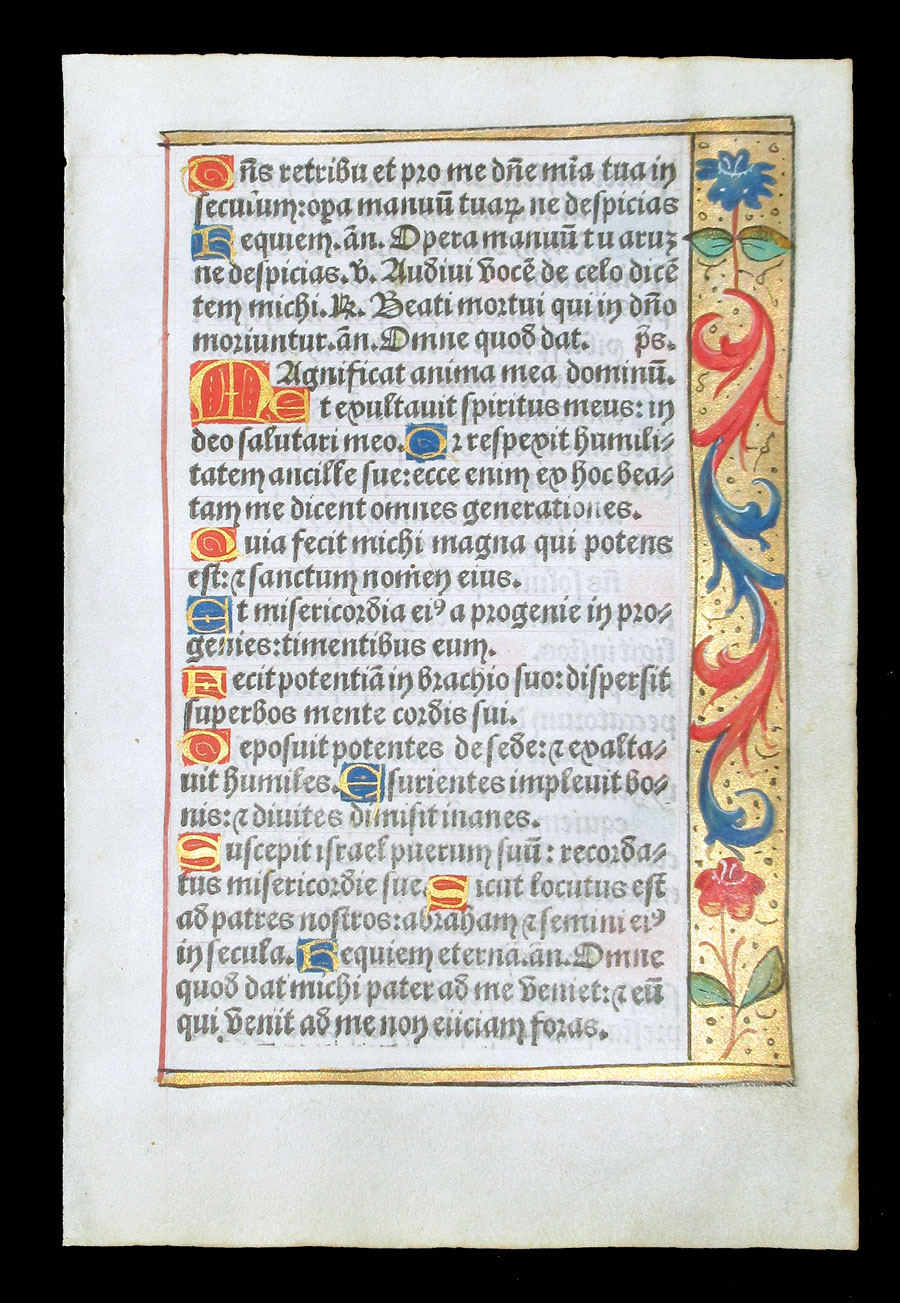 Dñs retribuet pro me dñe mĩa tua in
seculum: oꝑa manuũ tuaꝝ ne despicias
Requiem. añ. Opera manuũ tuaruz
ne despicias. ℣. Audivi vocẽ de celo dicẽ
tem michi. ℟. Beati mortui qui in dño
moriuntur. añ. Omne quod dat. p̃s.
MAgnificat anima mea dominũ.
Et exultauit spiritus meus: in
deo salutari meo. Qr respexit humili⸗
tatem ancille sue: ecce enim ex hoc bea⸗
tam me dicent omnes generationes.
Quia fecit michi magna qui potens
est: ⁊ sanctum nomen eius.
Et misericordia eiꝰ a progenie in pro⸗
genies: timentibus eum.
Fecit potentiã in brachio suo: dispersit
superbos mente cordis sui.
Deposuit potentes de sede: ⁊ exalta⸗
uit humiles. Esurientes impleuit bo⸗
nis: ⁊ diuites dimisit inanes.
Suscepit israel puerum suũ: recorda⸗
tus misericordie sue. Sicut locutus est
ad patres nostros: abraham ⁊ semini eiꝰ
in secula. Requiem eternã. añ. Omne
quod dat michi pater ad me veniet: ⁊ eũ
qui venit ad me non eiiciam foras.